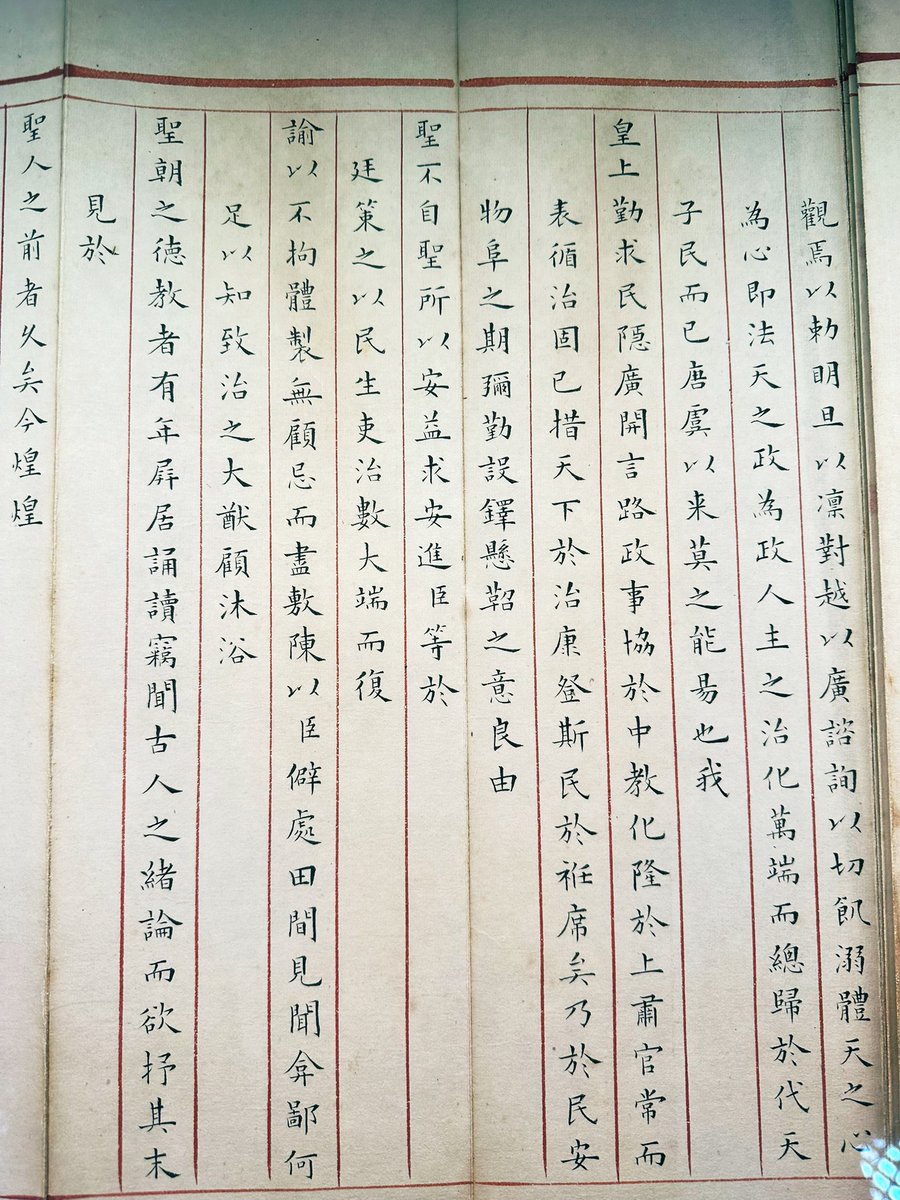 觀焉以勅明旦以凛對越以廣諮詢以切飢溺體天之心
為心即法天之政為政人主之治化萬端而總歸於代天
子民而已唐虞以来莫之能易也我
皇上勤求民隱廣開言路政事協於中教化隆於上肅官常而
表循治固已措天下於治康登斯民於袵席矣乃於民安
物阜之期彌勤設鐸懸鞀之意良由
聖不自聖所以安益求安進臣等於
廷策之以民生吏治數大端而復
諭以不拘體製無顧忌而盡敷陳以臣僻處田間見聞弇鄙何
足以知致治之大猷顧沐浴
聖朝之德教者有年屏居誦讀竊聞古人之緒論而欲抒其末
見於
聖人之前者久矣今煌煌